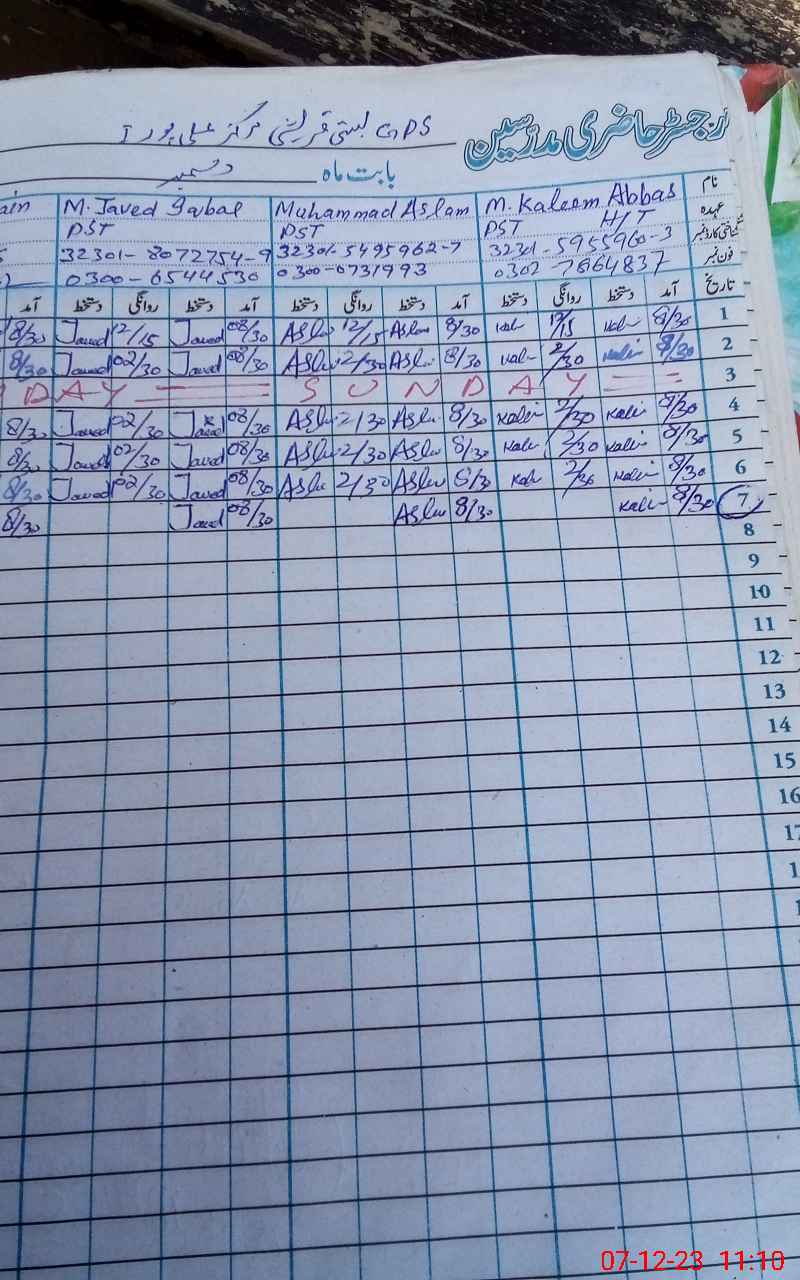 رجسٹر حاضری مدرسین GPS بستی قریشی مرکز علی پور I
بابت ماہ دسمبر
نام M. Kaleem Abbas Muhammad Aslam M. Javed Iqbal ain
عہدہ PST H/T PST PST
شناختی کارڈ نمبر 32301-5955960-3 32301-5495962-7 32301-8072754-9
فون نمبر 0302-7664837 0300-6731993 0300-6544530
تاریخ آمد دستخط روانگی دستخط آمد دستخط روانگی دستخط آمد دستخط روانگی دستخط آمد
1 8/30 Kale 12/15 Kale 8/30 Aslam 12/15 Aslam 08/30 Javed 12/15 Javed 8/30
2 8/30 Kale 2/30 Kale 8/30 Aslam 2/30 Aslam 08/30 Javed 02/30 Javed 8/30
3 = = S U N D A Y = D A Y =
4 8/30 Kale 2/30 Kale 8/30 Aslam 2/30 Aslam 08/30 Javed 02/30 Javed 8/30
5 8/30 Kale 2/30 Kale 8/30 Aslam 2/30 Aslam 08/30 Javed 02/30 Javed 8/30
6 8/30 Kale 2/30 Kale 8/30 Aslam 2/30 Aslam 08/30 Javed 02/30 Javed 8/30
7 8/30 Kale 8/30 Aslam 08/30 Javed 8/30
8
9
10
11
12
13
14
15
16
17
07-12-23 11:10